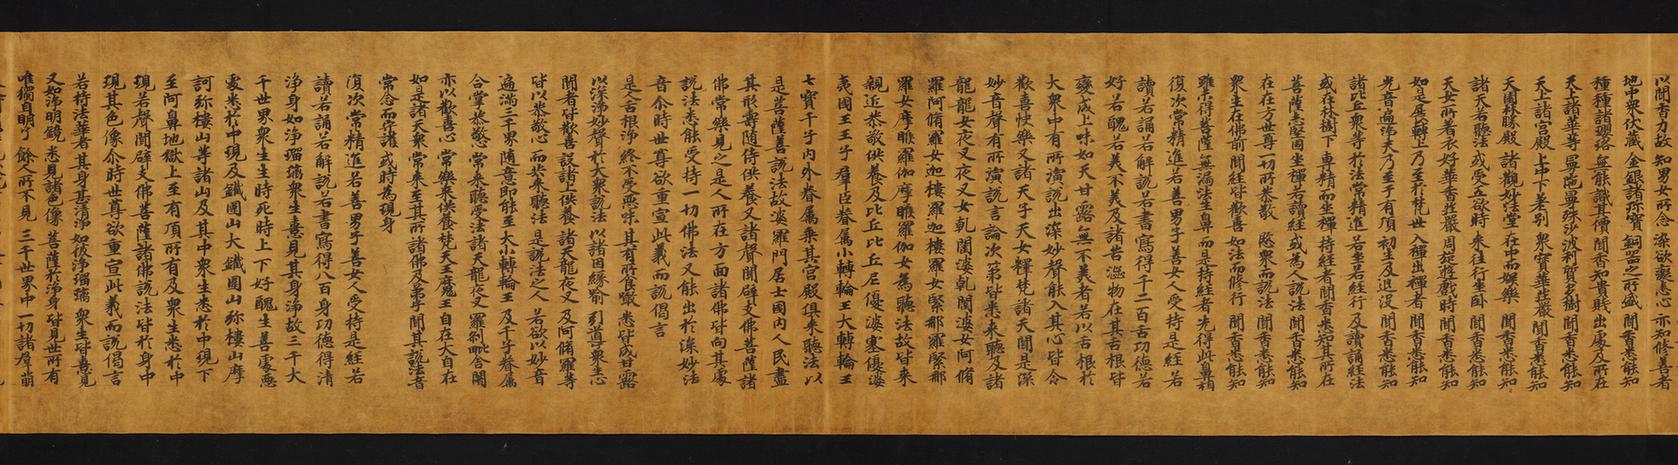 以聞香力故 知男女所念 染欲癡恚心 亦知修善者
地中衆伏藏 金銀諸珎寶 銅器之所盛 聞香悉能知
種種諸瓔珞 無能識其價 聞香知貴賤 出處及所在
天上諸華等 曼陁曼殊沙 波利質多樹 聞香悉能知
天上諸宮殿 上中下差別 衆寶華莊嚴 聞香悉能知
天園林勝殿 諸觀妙法堂 在中而娛樂 聞香悉能知
諸天若聽法 或受五欲時 來往行坐卧 聞香悉能知
天女所著衣 好華香莊嚴 周旋遊戲時 聞香悉能知
如是展轉上 乃至於梵世 入禪出禪者 聞香悉能知
光音遍淨天 乃至于有頂 初生及退没 聞香悉能知
諸比丘衆等 於法常精進 若坐若經行 及讀誦經法
或在林樹下 專精而坐禪 持經者聞香 悉知其所在
菩薩志堅固 坐禪若讀經 或為人說法 聞香悉能知
在在方世尊 一切所恭敬 愍衆而說法 聞香悉能知
衆生在佛前 聞經皆歡喜 如法而修行 聞香悉能知
雖未得菩薩 無漏法生鼻 而是持經者 先得此鼻相
復次常精進若善男子善女人受持是經若
讀若誦若解說若書寫得千二百舌功德若
好若醜若美不美及諸苦澁物在其舌根皆
變成上味如天甘露無不美者若以舌根於
大衆中有所演說出深妙聲能入其心皆令
歡喜快樂又諸天子天女釋梵諸天聞是深
妙音聲有所演說言論次第皆悉來聽及諸
龍龍女夜叉夜叉女乾闥婆乾闥婆女阿脩
羅阿脩羅女迦樓羅迦樓羅女緊那羅緊那
羅女摩睺羅伽摩睺羅伽女為聽法故皆來
親近恭敬供養及比丘比丘尼優婆塞優婆
夷國王王子羣臣眷属小轉輪王大轉輪王
七寶千子内外眷属乘其宮殿俱來聽法以
是菩薩善說法故婆羅門居士國内人民盡
其形壽隨侍供養又諸聲聞辟支佛菩薩諸
佛常樂見之是人所在方面諸佛皆向其處
說法悉能受持一切佛法又能出於深妙法
音尒時世尊欲重宣此義而說偈言
是人舌根淨 終不受惡味 其有所食噉 悉皆成甘露
以深淨妙聲 於大衆說法 以諸因緣喻 引導衆生心
聞者皆歡喜 設諸上供養 諸天龍夜叉 及阿脩羅等
皆以恭敬心 而共來聽法 是說法之人 若欲以妙音
遍滿三千界 隨意即能至 大小轉輪王 及千子眷属
合掌恭敬心 常來聽受法 諸天龍夜叉 羅刹毗舍闍
亦以歡喜心 常樂來供養 梵天王魔王 自在大自在
如是諸天衆 常來至其所 諸佛及弟子 聞其說法音
常念而守護 或時為現身
復次常精進若善男子善女人受持是經若
讀若誦若解說若書寫得八百身功德得清
淨身如淨瑠璃衆生憙見其身淨故三千大
千世界衆生生時死時上下好醜生善處惡
處悉於中現及鐵圍山大鐵圍山弥樓山摩
訶弥樓山等諸山及其中衆生悉於中現下
至阿鼻地獄上至有頂所有及衆生悉於中
現若聲聞辟支佛菩薩諸佛說法皆於身中
現其色像尒時世尊欲重宣此義而說偈言
若持法華者 其身甚清淨 如彼淨瑠璃 衆生皆憙見
又如淨明鏡 悉見諸色像 菩薩於淨身 皆見世所有
唯獨自明了 餘人所不見 三千世界中 一切諸羣萌